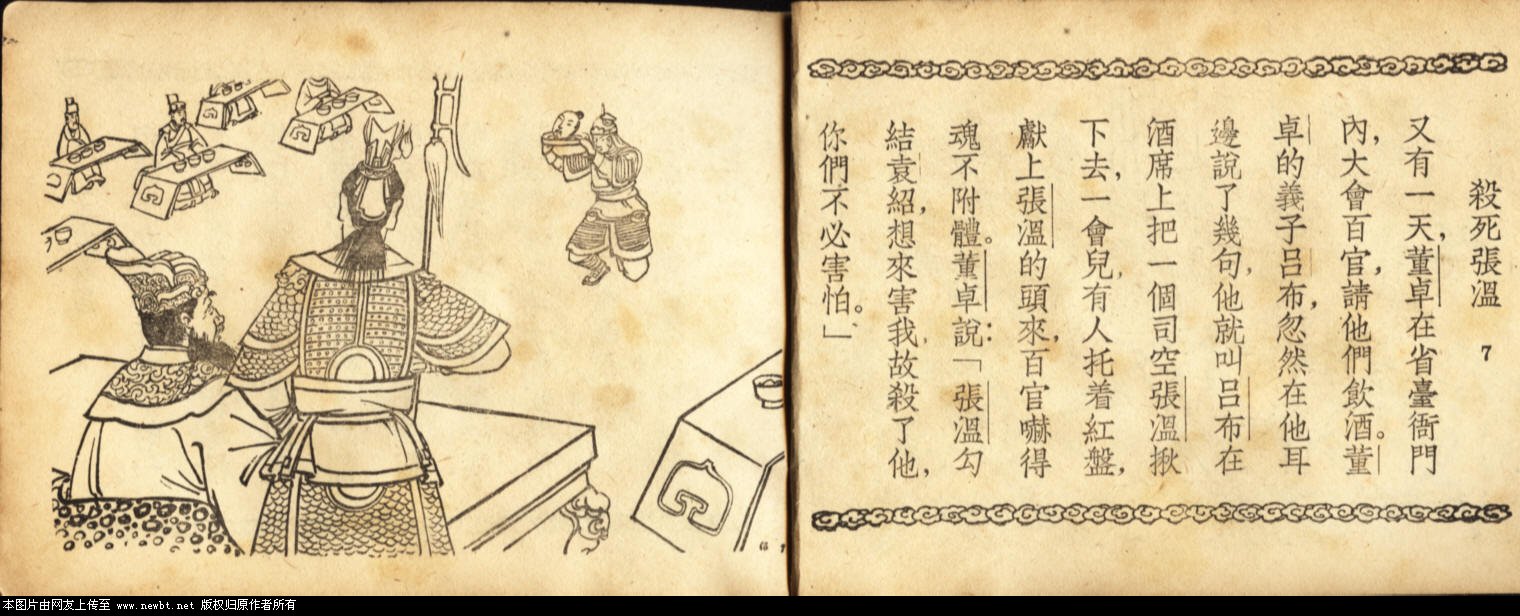 殺死張溫
7
又有一天，董卓在省臺衙門
內，大會百官，請他們飲酒。董
卓的義子呂布，忽然在他耳
邊說了幾句，他就叫呂布在
酒席上把一個司空張溫揪
下去，一會兒，有人托着紅盤，
獻上張溫的頭來，百官嚇得
魂不附體。董卓說：「張溫勾
結袁紹，想來害我，故殺了他，
你們不必害怕。」
本图片由网友上传至 www.newbt.net 版权归原作者所有